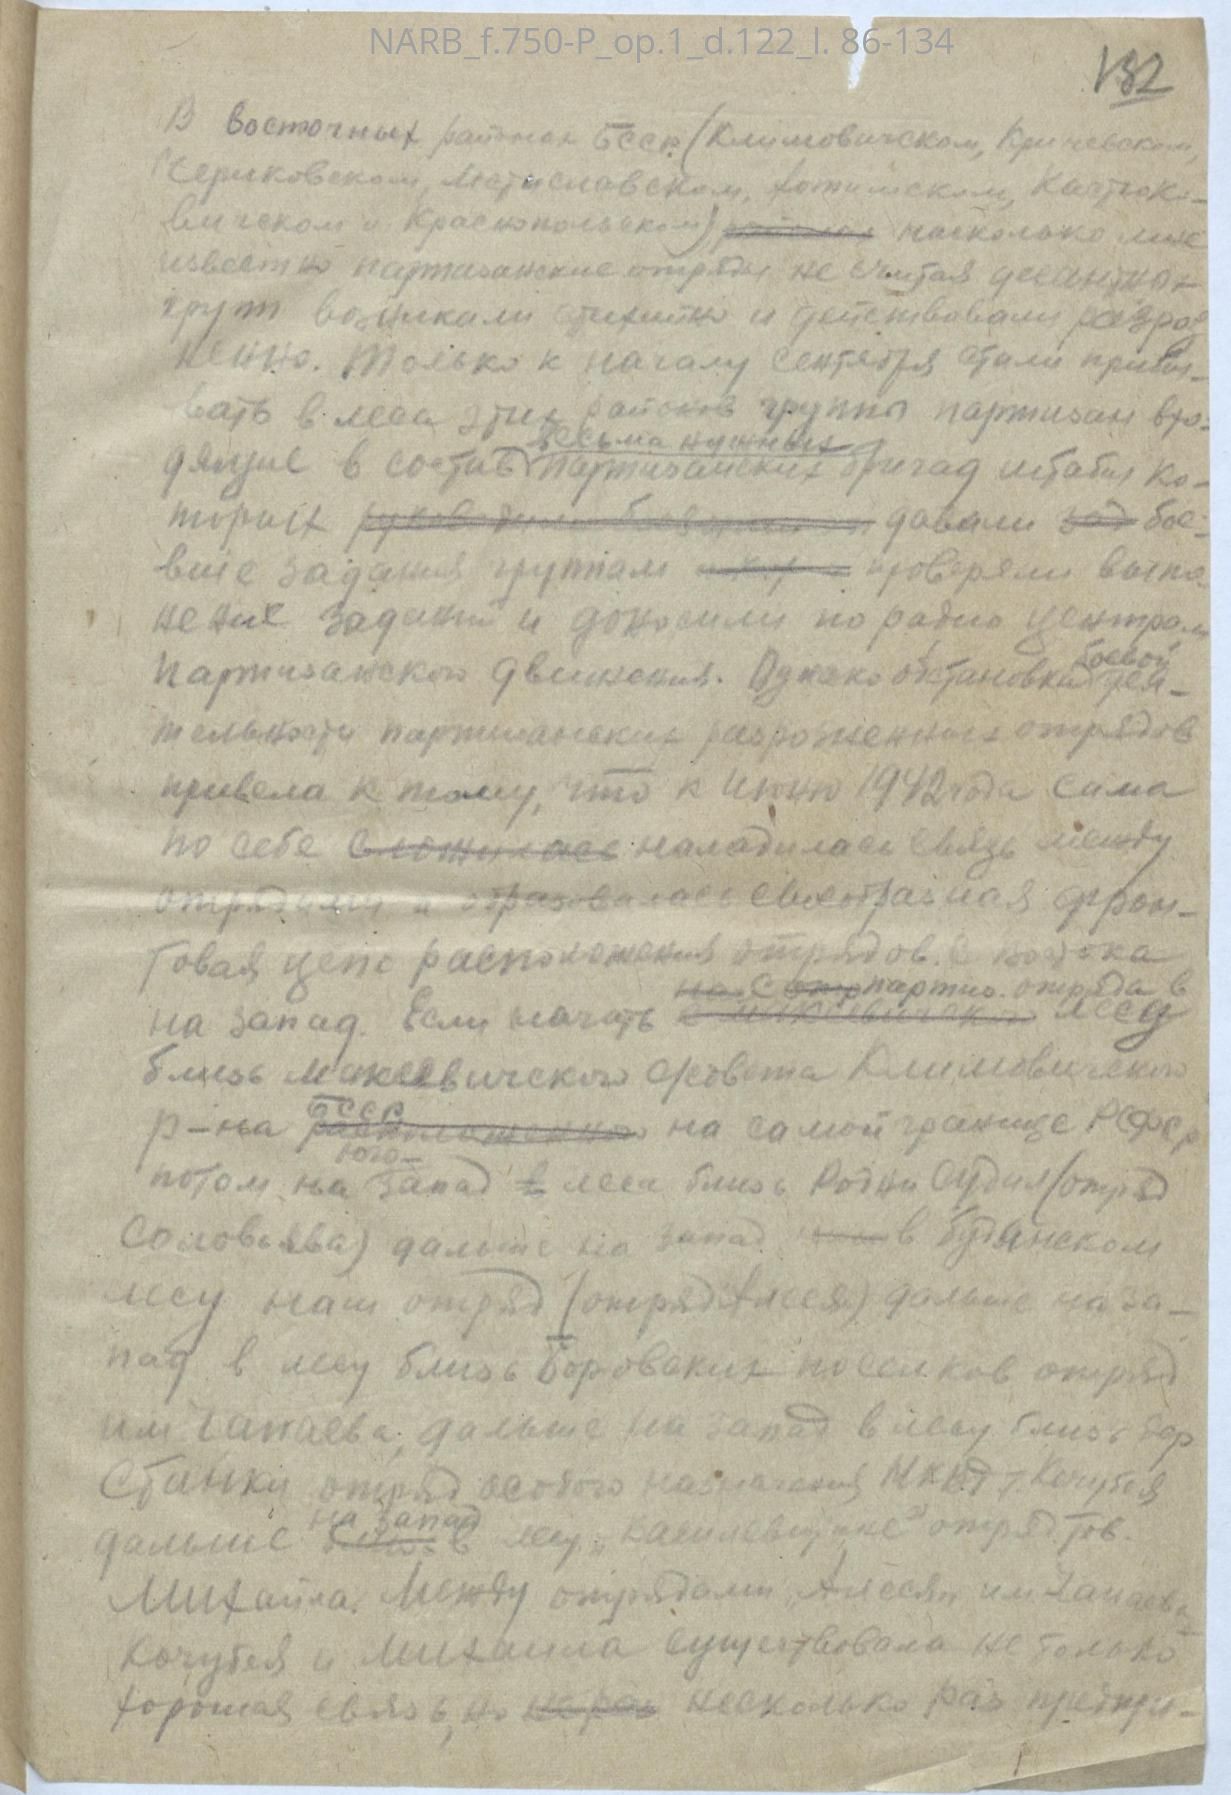 NARB_f.750-P_op.1_d.122_l. 86-134
132
В восточных районах БССР (Климовичском, Кричевском,
Чериковском, Мстиславском, Хотимском, Костюко-
вичском и Краснопольском) насколько мне
известно партизанские отряды не считая десантных
групп возникали стихийно и действовали разроз
ненно. Только к началу сентября стали прибы-
вать в леса этих районов группы партизан вхо-
дящие в состав весьма нужных партизанских бригад штабы ко-
торых давали зад бое-
вые задания группам проверяли выпол
нение заданий и доносили по радио центрам
партизанского движения. Однако обстановка боевой дея-
тельности партизанских разрозненных отрядов
привела к тому, что к июню 1942 года сама
по себе сложилась наладилась связь между
отрядами и образовалась своеобразная фрон-
товая цепь расположения отрядов с востока
на запад. Если начать партиз. отряда в лесу
близь Макеевичского с/совета Климовичского
р-на БССР расположенного на самой границе РСФСР
потом на юго-запад в леса близь Родни Судил (отряд
Соловьева) дальше на запад в Будянском
лесу наш отряд (отряд Алеся) дальше на за-
пад в лесу близь Боровских поселков отряд
им Чапаева, дальше на запад в лесу близь дер
Сбышки отряд особого назначения НКВД т. Кочубея
дальше на запад в лесу „Василевщине" отряд тов
Михаила. Между отрядами „Алеся", им Чапаева
Кочубея и Михаила существовала не только
хорошая связь, но не раз несколько раз предпри-